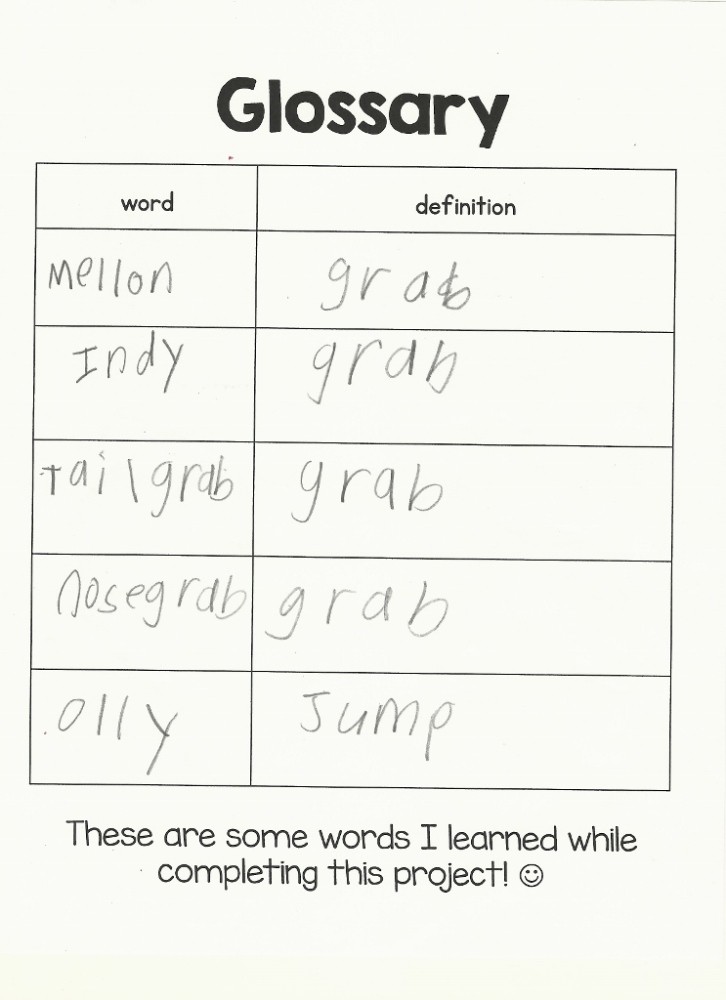 Glossary
word definition
Mellon grab
Indy grab
tailgrab grab
nosegrab grab
Olly Jump
These are some words I learned while
completing this project! ☺